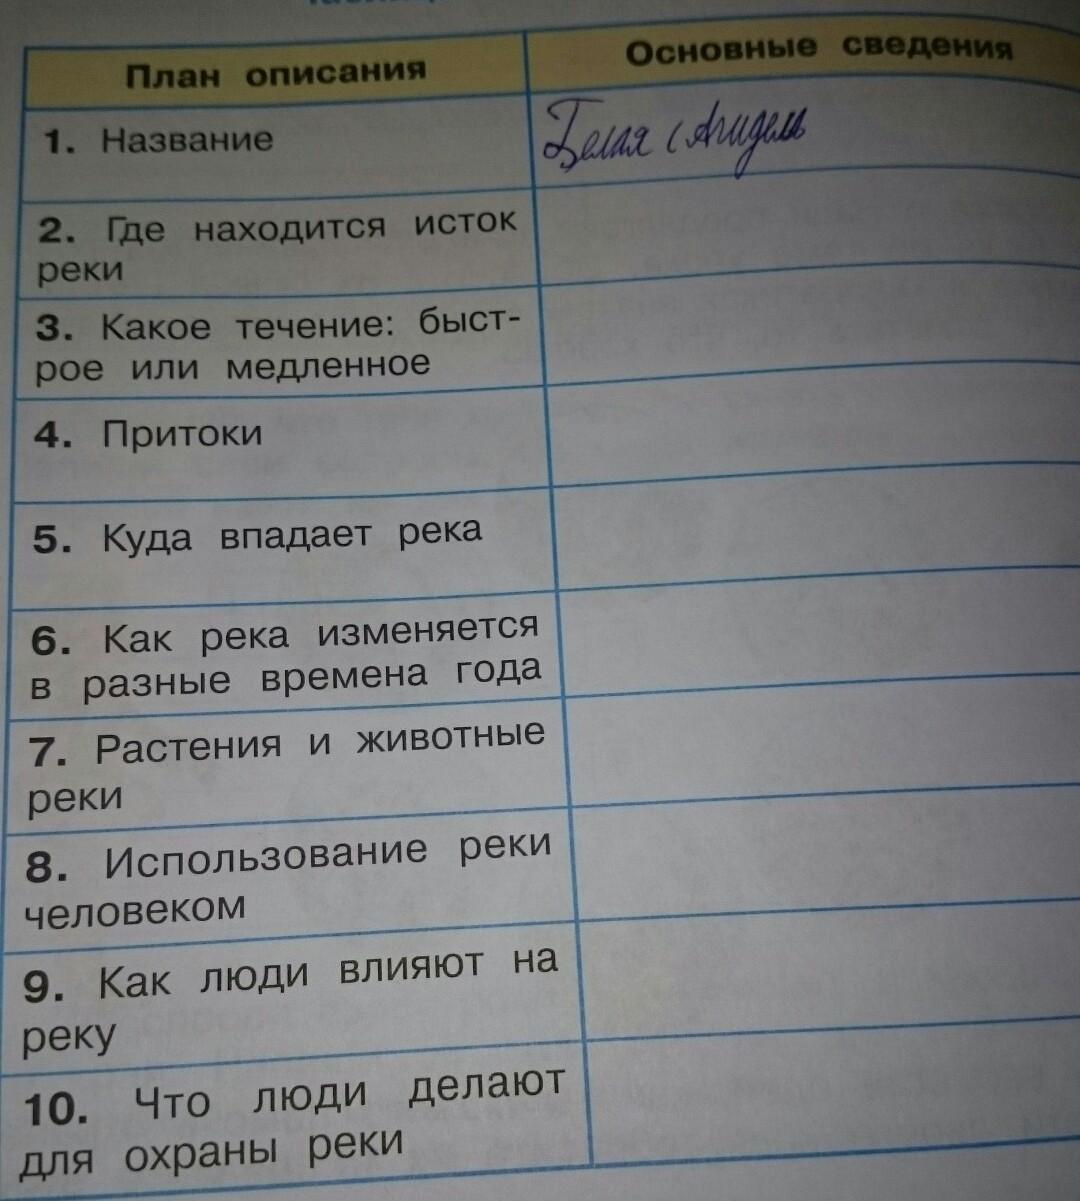 План описания
Основные сведения
1. Название
Белая (Агидель
2. Где находится исток
реки
3. Какое течение: быст-
рое или медленное
4. Притоки
5. Куда впадает река
6. Как река изменяется
в разные времена года
7. Растения и животные
реки
8. Использование реки
человеком
9. Как люди влияют на
реку
10. Что люди делают
для охраны реки